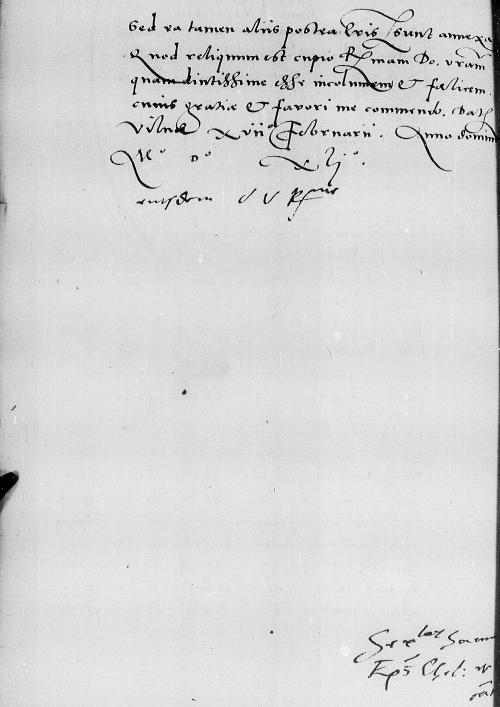 Sed ea tamen aliis postea l̃ris sunt annexa
Quod reliquum est cupio Rmam Do. vram̃
quam diutissime esse incolumem & fælicem.
cuius gratiæ & favori me commendo. Dat̃
Vilnæ XVII Februarii. Anno domini
Mo Do XLIo.
eiusdem d v Rme
Eps̃ Chel: